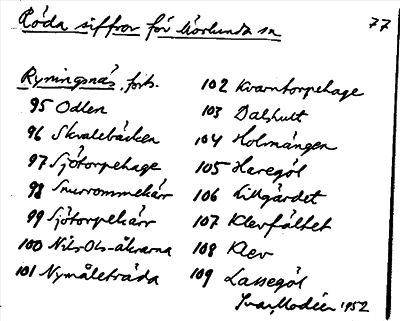 Röda siffror för Mörlunda sn
77
Ryningsnäs, forts.
95 Odlen
96 Skvalebäcken
97 Sjötorpehage
98 Snurrommekärr
99 Sjötorpekärr
100 Nils-Ols-åkrarna
101 Nymåleträda
102 Kvarntorpehage
103 Dalshult
104 Holmängen
105 Haregöl
106 Lillgärdet
107 Klevfältet
108 Klev
109 Lassegöl
Ivar Modéer 1952